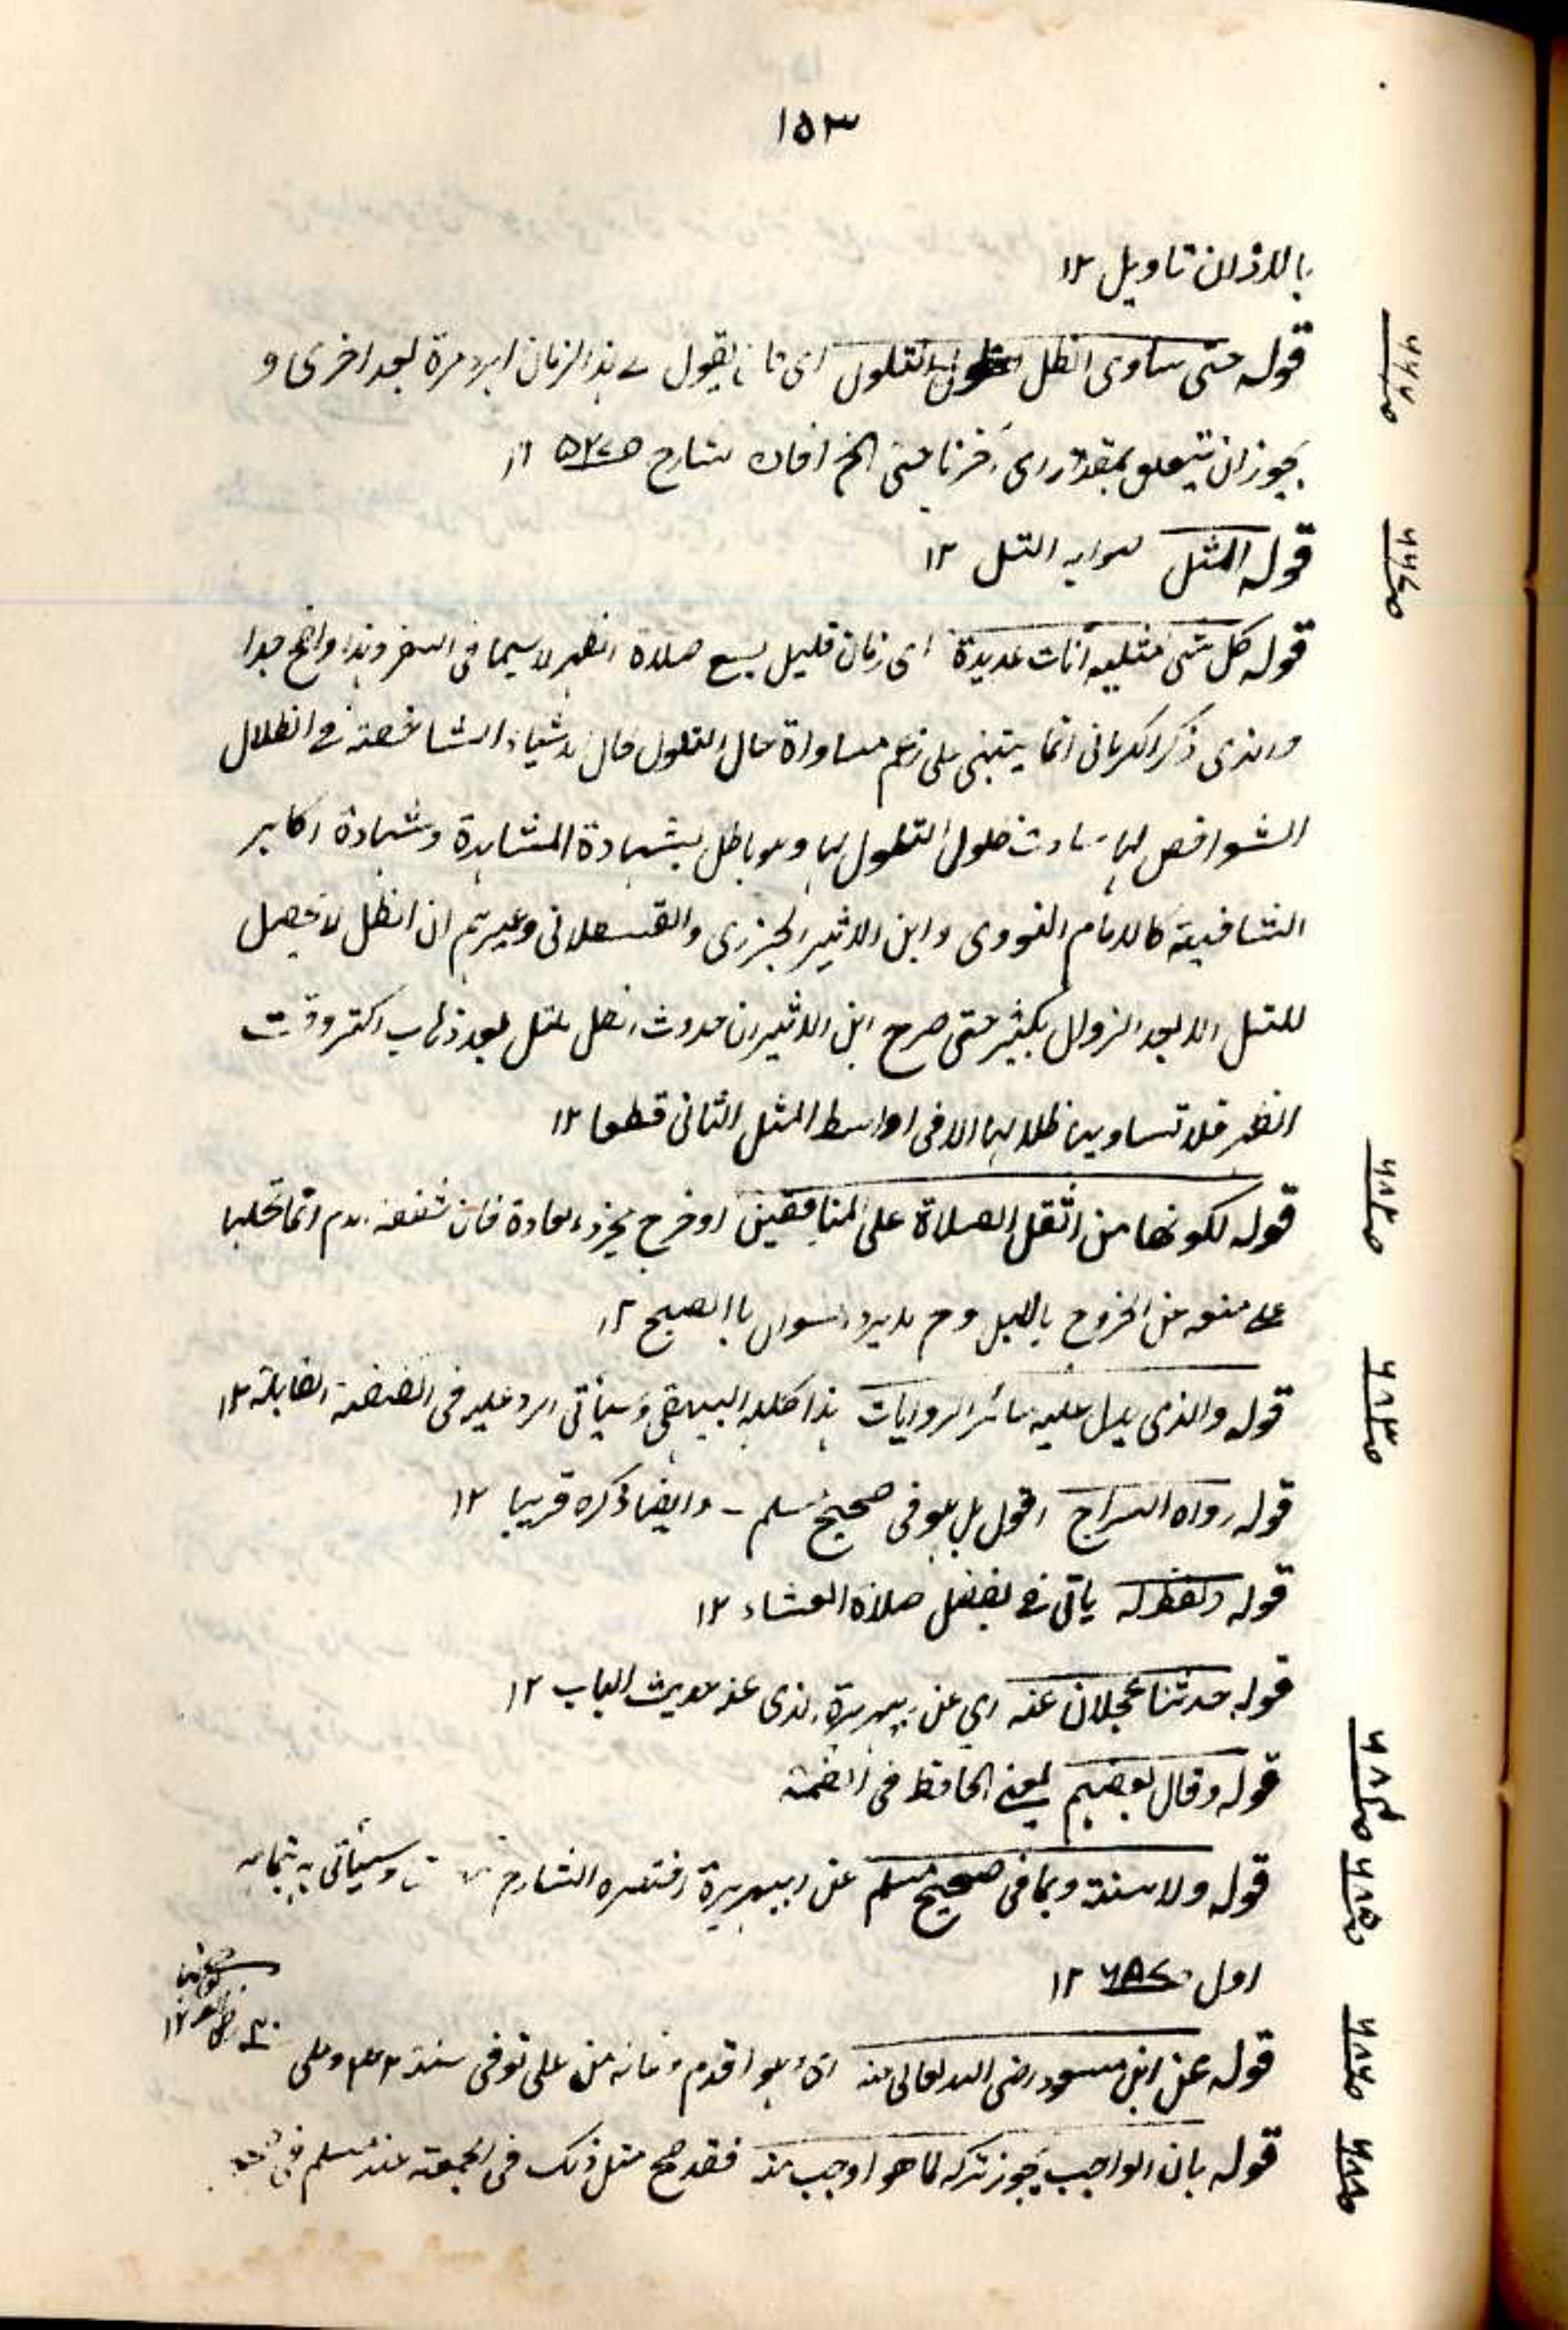 ١٥٣
بالاذان تاويل ١٢
قوله حتى ساوى الظل التلول اى كان يقول فى هذا الزمان ابرد مرة بعد اخرى و
٦٦٧
يجوز ان يتعلق بمقدر اى اخرنا حتى الخ افاده شارح ص ٥٢٧ ١٢
قوله المثل صوابه التل ١٢
قوله كل شئ مثليه آنات عديدة اى زمان قليل يسع صلاة الظهر لا سيما فى السفر وهذا واضح جدا
والذى ذكر الكرمانى انما يبتنى على زعم مساواة حال التلول حال الاشياء الشاخصة فى الظلال
الشواخص لها ساوت ظلول التلول لها وهو باطل بشهادة المشاهدة وشهادة اكابر
الشافعية كالامام النووى وابن الاثير الجزرى والقسطلانى وغيرهم ان الظل لا يحصل
للتل الا بعد الزوال بكثير حتى صرح ابن الاثير ان حدوث الظل للتل بعد ذهاب اكثر وقت
الظهر فلا تساويها ظلالها الا فى اواسط المثل الثانى قطعا ١٢
قوله لكونها من اثقل الصلاة على المنافقين او خرج مخرج العادة فان شفقة الام انما تحملها
على منعه من الخروج بالليل وح لا يرد السوال بالصبح ١٢
قوله والذى يدل عليه سائر الروايات هذا كلام البيهقى وسيأتى الرد عليه فى الصفحة القابلة ١٢
قوله رواه السراج اقول بل هو فى صحيح مسلم - وايضا ذكره قريبا ١٢
قوله ولفظه يأتى فى فضل صلاة العشاء ١٢
قوله حدثنا عجلان عنه اى عن ابى هريرة الذى عنه حديث الباب ١٢
قوله وقال بعضهم يعنى الحافظ فى الفتح
قوله ولا سنة وبما فى صحيح مسلم عن ابى هريرة اختصره الشارح وسيأتى بتمامه
اول ص ٦٨٧ ١٢
قوله عن ابن مسعود رضى الله تعالى عنه اى وهو اقدم وفاة من على توفى سنة وعلى
قوله بان الواجب يجوز تركه لما هو اوجب منه فقد صح مثل ذلك فى الجمعة عند مسلم فى